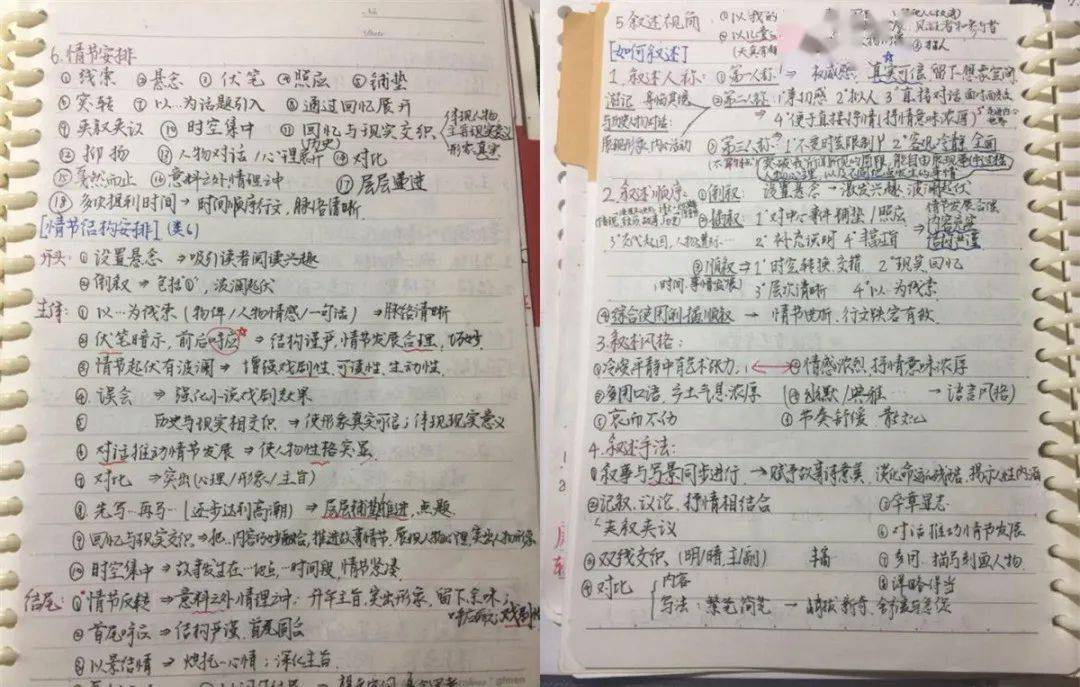 6.情节安排
①线索 ②悬念 ③伏笔 ④照应 ⑤铺垫
⑥突转 ⑦以…为话题引入 ⑧通过回忆展开
⑨夹叙夹议 ⑩时空集中 ⑪回忆与现实交织
(历史)
体现人物
主旨现实意义
形象真实
⑫抑扬 ⑬人物对话/心理 ⑭对比
⑮戛然而止 ⑯意料之外情理之中 ⑰层层递进
⑱多次提到时间→时间顺序行文,脉络清晰
[情节结构安排](类6)
开头:①设置悬念⇒吸引读者阅读兴趣
②倒叙⇒包括"①",波澜起伏
主体:①以…为线索(物件/人物情感/一句话)⇒脉络清晰
②伏笔暗示,前后呼应⇒结构严谨,情节发展合理,巧妙
③情节起伏有波澜⇒增强戏剧性,可读性,生动性.
④误会⇒强化小说戏剧效果
⑤历史与现实相交织⇒使形象真实可信;体现现实意义
⑥对话推动情节发展⇒使人物性格突显.
⑦对比⇒突出(心理/形象/主旨)
⑧先写…再写…(逐步达到高潮)⇒层层铺垫推进,点题.
⑨回忆与现实交织⇒把…内容巧妙融合,推进故事情节,展现人物心理,突出人物形象
⑩时空集中⇒故事发生在…地点,…时间段,情节紧凑.
结尾:①情节反转⇒意料之外情理之中;升华主旨,突出形象,留下余味;
②首尾呼应⇒结构严谨,首尾圆合
③以景结情⇒烘托…心情;深化主旨.
5.叙述视角 ①以我的
②以儿童
见证者和参与者
[如何叙述]
1.叙述人称:①第一人称⇒权威感,真实可信 留下想象空间
游记 身临其境
②第二人称:1°亲切感 2°拟人 3°直接对话
与历史人物对话:
→4°便于直接抒情(抒情意味浓厚)
展现形象,内心活动
③第三人称:1°不受时空限制 2°客观冷静 全面
2.叙述顺序:①倒叙:设置悬念→激发兴趣 波澜起伏
②插叙 1°对中心事件铺垫/照应
情节发展合理
内容充实
结构严谨
2°补充说明 4°丰富
③顺叙⇒1°时空转换,交错 2°现实回忆
(时间,事情发展)
3°层次清晰 4°以…为线索.
④综合使用倒插顺叙→情节曲折,行文跌宕有致.
3.叙述风格:
①冷峻平静中有艺术张力. ②情感浓烈,抒情意味浓厚
③多用口语,乡土气息浓厚 (④幽默/典雅……→语言风格)
⑤哀而不伤 ⑥节奏舒缓 散文化
4.叙述手法:
①叙事与写景同步进行→赋予故事诗意美 淡化命运的残酷,揭示人性内涵
②记叙、议论、抒情相结合 ⑤卒章显志
夹叙夹议 ⑥对话推动情节发展
③双线交织(明/暗,主/副) ⑦多用…描写刻画人物.
④对比 内容 ⑧详略得当
写法:繁笔简笔